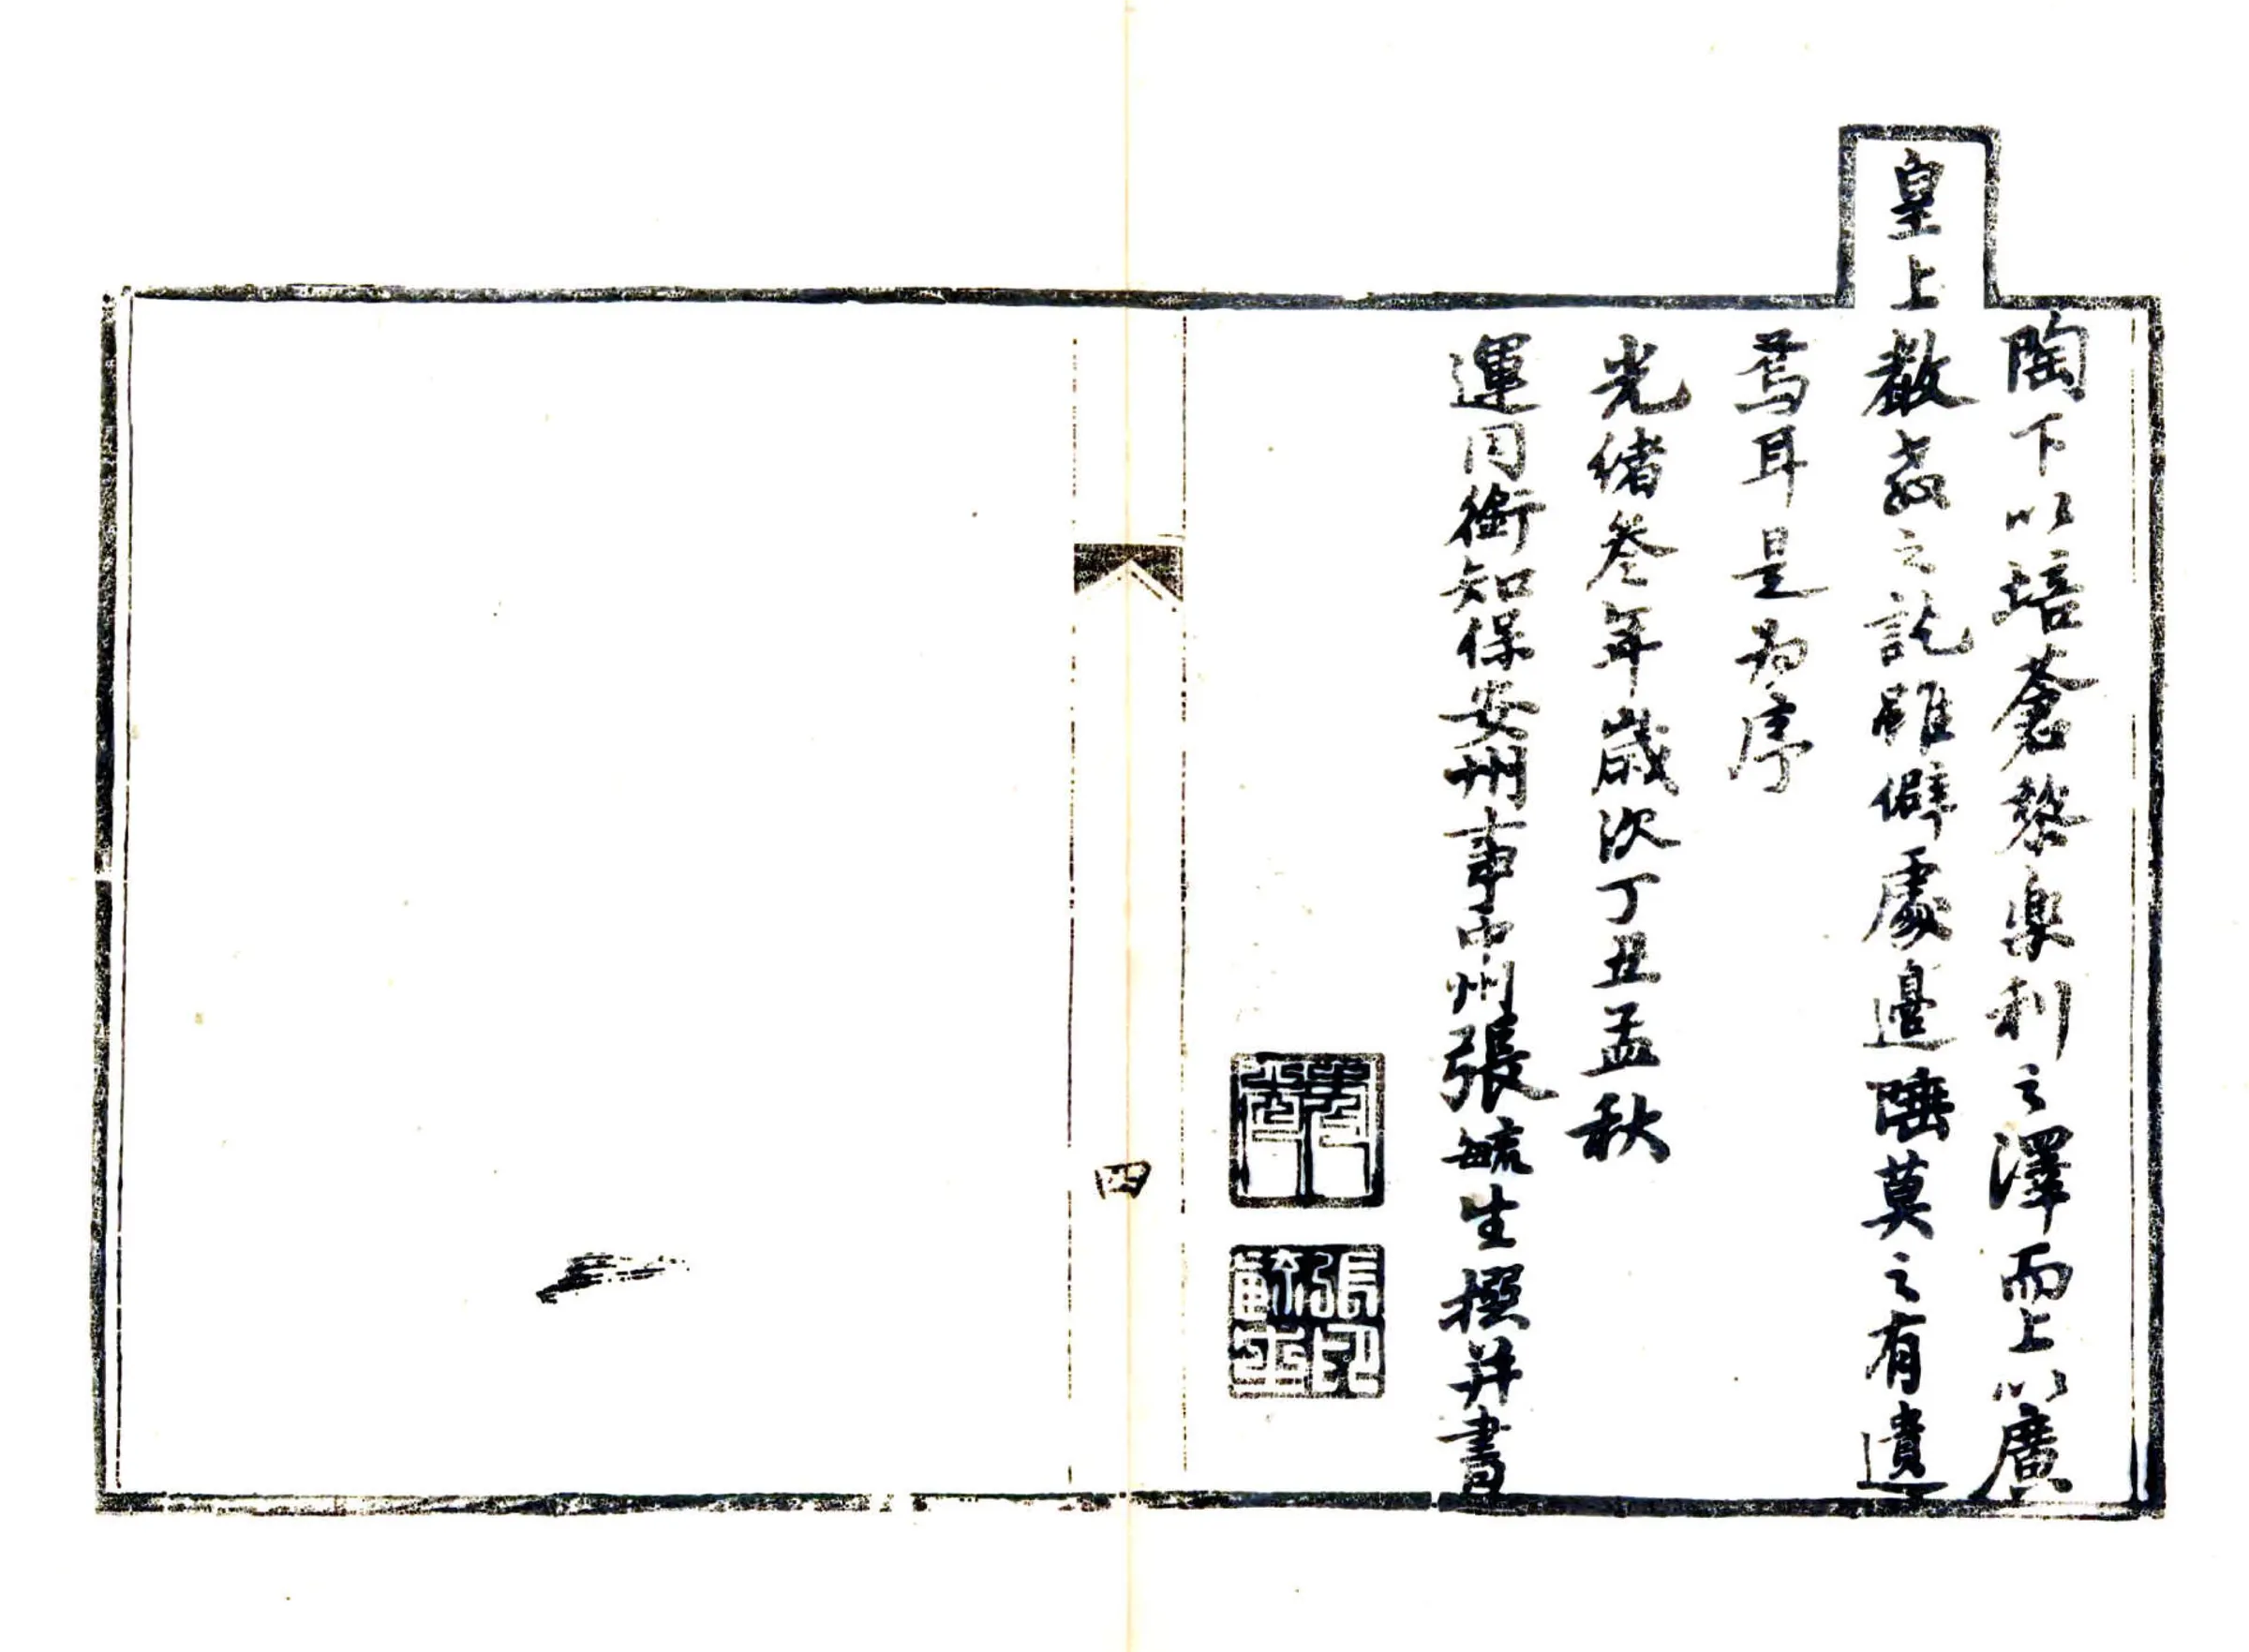 陶下以培蒼黎樂利之澤而上以廣
皇上教之訖雖僻處邊陲莫之有遺
焉耳是为序
光緒叁年歲次丁丑孟秋
運同銜知保安州事中州張毓生撰并書
張印毓生
四